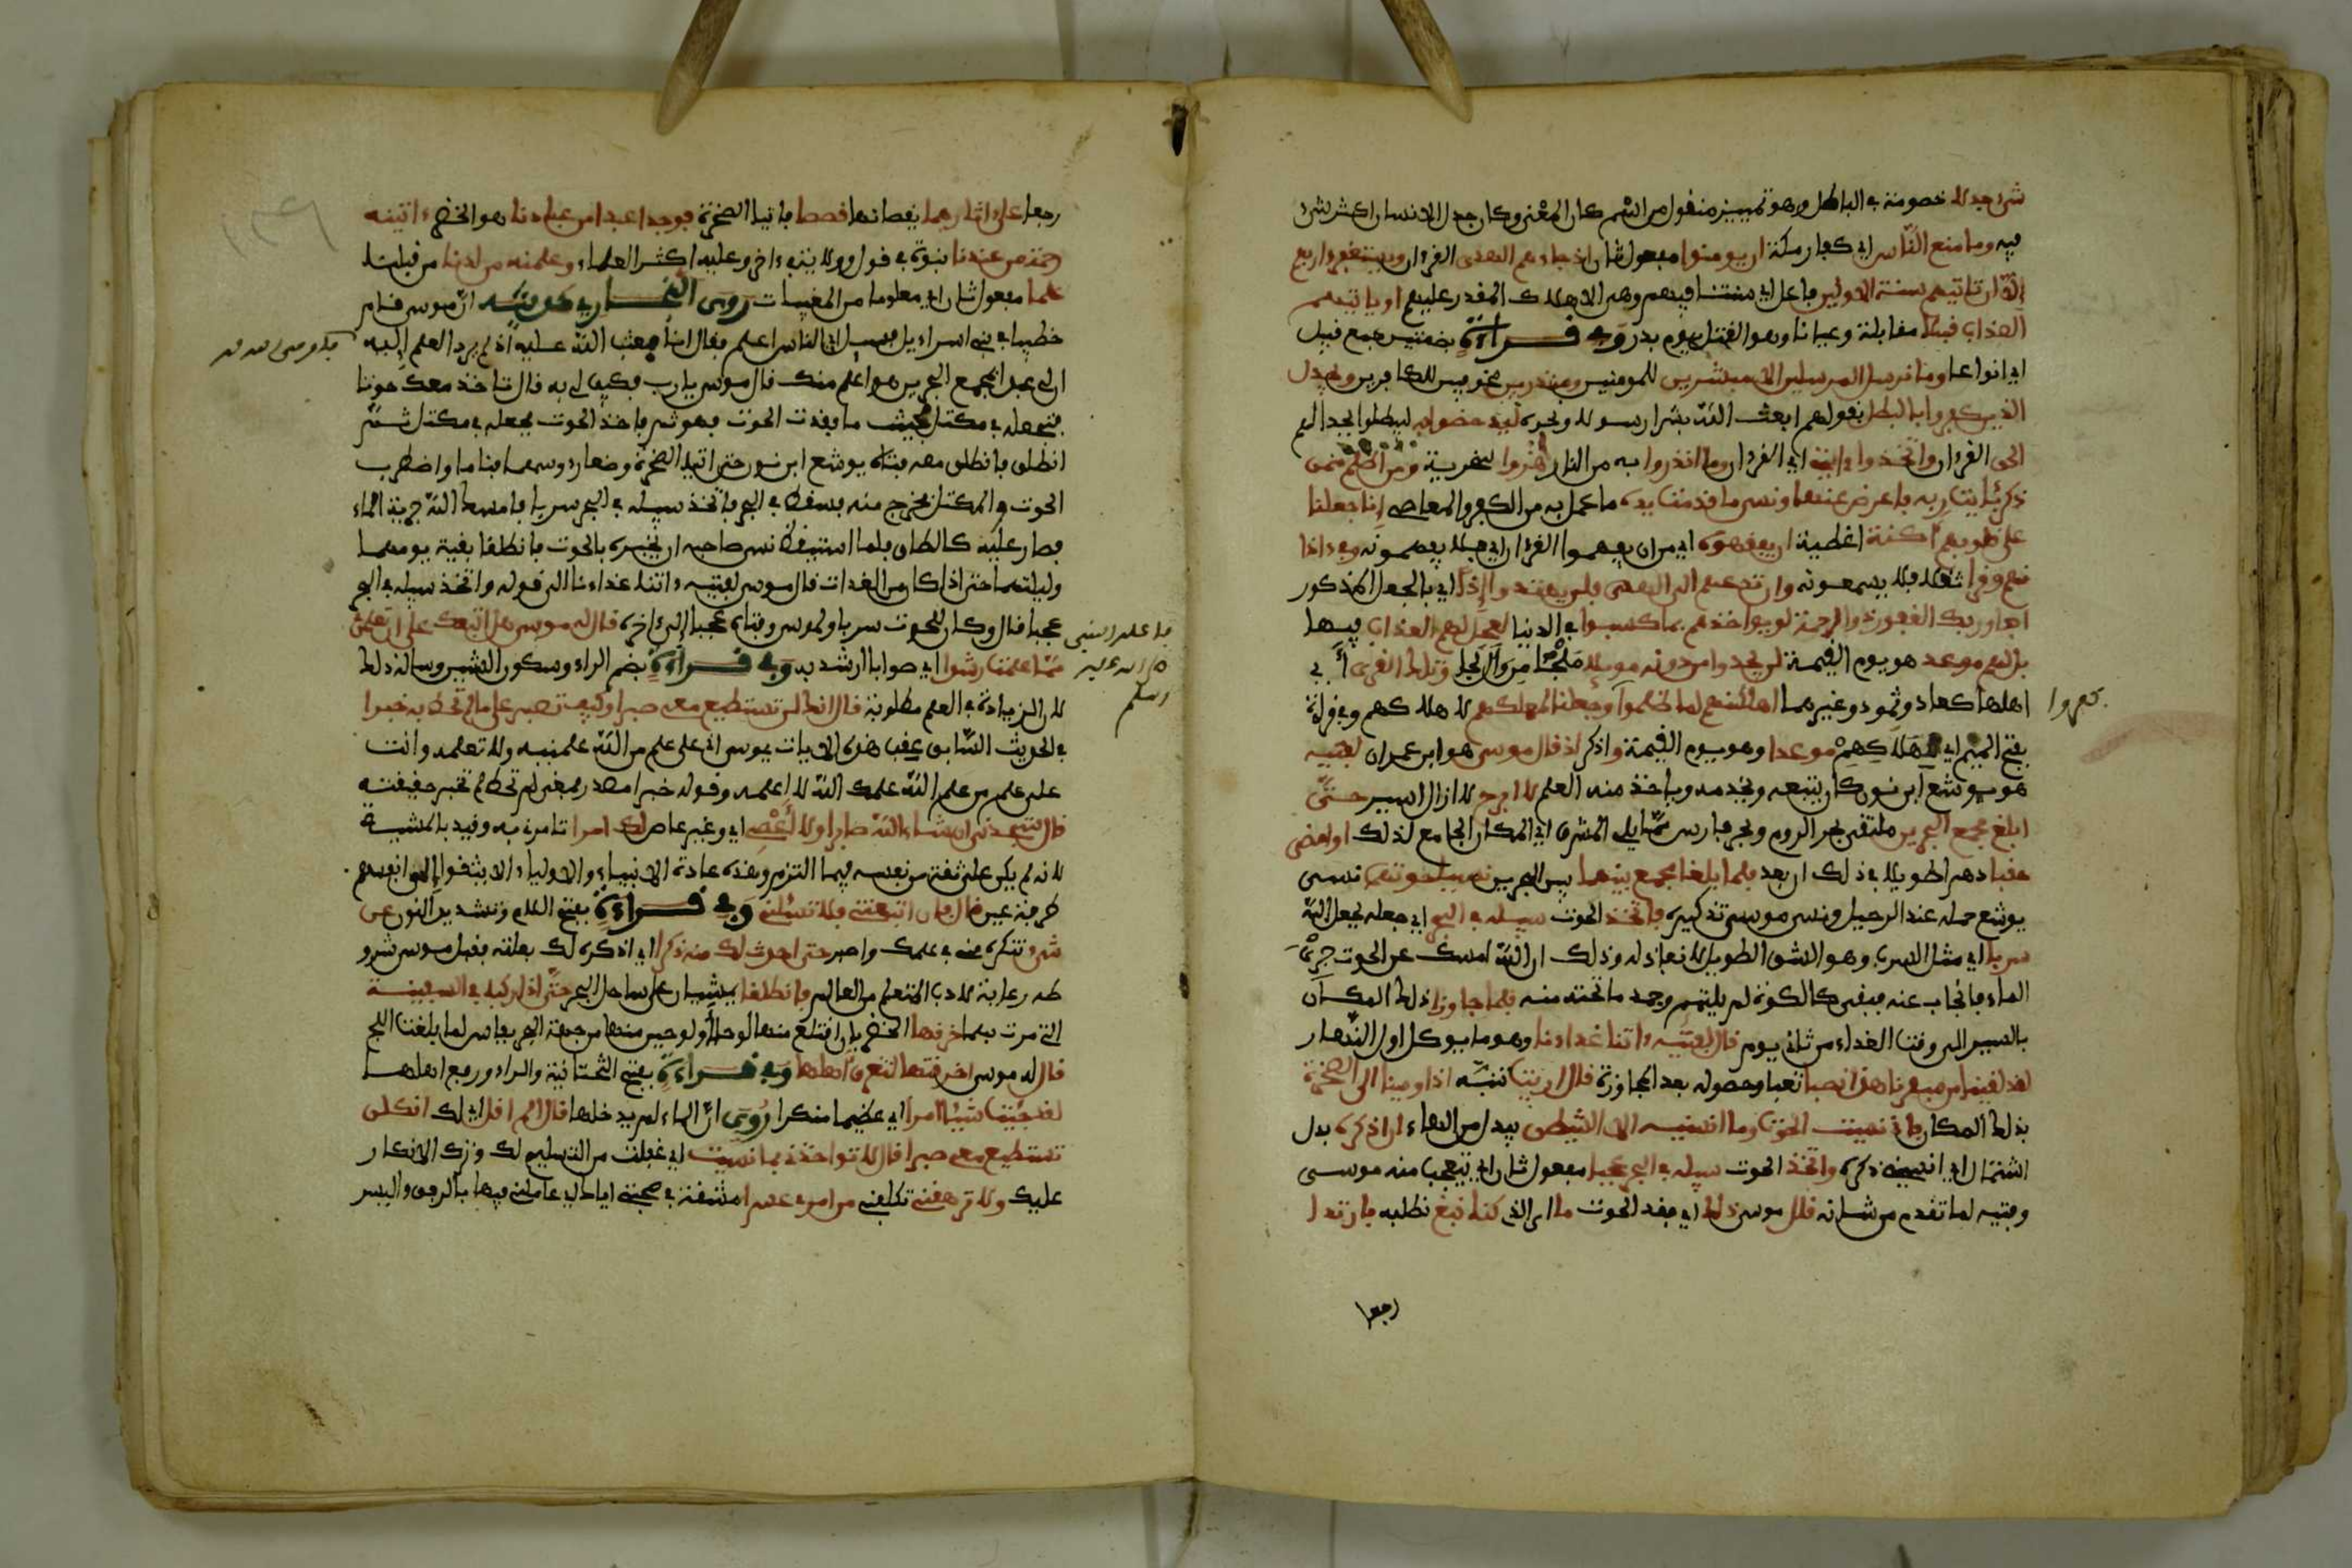 شيء جدلا خصومة في الباطل وهو تمييز منقول من اسم كان المعنى وكان جدل الانسان اكثر شيء
فيه وما منع الناس اي كفار مكة ان يومنوا مفعول ثان اذ جاءهم الهدى القرءان ويستغفروا ربهم
إلا أن تاتيهم سنة الاولين فاعل اي سنتنا فيهم وهي الاهلاك المقدر عليهم او ياتيهم
العذاب قبلا مقابلة وعيانا وهو القتل يوم بدر وفي قراءة بضمتين جمع قبيل
اي انواعا وما نرسل المرسلين الا مبشرين للمومنين ومنذرين مخوفين للكافرين ويجدل
الذين كفروا بالبطل بقولهم ابعث الله بشرا رسولا ونحوه ليدحضوا به ليبطلوا بجدالهم
الحق القرءان واتخذوا ءايتي اي القرءان وما انذروا به من النار هزؤا سخرية ومن اظلم ممن
ذكر بئايت ربه فاعرض عنها ونسي ما قدمت يده ما عمل به من الكفر والمعاصي إنا جعلنا
على قلوبهم اكنة اغطية ان يفقهوه اي من ان يفهموا القرءان اي فلا يفهمونه وفي ءاذا
نهم وقرا ثقلا فلا يسمعونه وان تدعهم الى الهدى فلن يهتدوا إذا اي بالجعل المذكور
ابدا وربك الغفور ذو الرحمة لو يواخذهم بما كسبوا في الدنيا لعجل لهم العذاب فيها
بل لهم موعد هو يوم القيمة لن يجدوا من دونه موئلا ملجئا وتلك القرى أي
اهلها كعاد وثمود وغيرهما اهلكنهم لما ظلموا وجعلنا لمهلكهم لاهلاكهم وفي قراءة
كفروا
بفتح الميم اي لهلاكهم موعدا وهو يوم القيمة واذكر اذ قال موسى هو ابن عمران لفتيه
هو يوشع ابن نون كان يتبعه ويخدمه وياخذ منه العلم لا ابرح لا ازال اسير حتى
ابلغ مجمع البحرين ملتقى بحر الروم وبحر فارس مما يلي المشرق اي المكان الجامع لذلك او امضي
حقبا دهرا طويلا في ذلك ان بعد فلما بلغا مجمع بينهما بين البحرين نسيا حوتهما نسي
يوشع حمله عند الرحيل ونسي موسى تذكيره فاتخذ الحوت سبيله في البحر اي جعله بجعل الله
سربا اي مثل السرب وهو الشق الطويل لا نفاذ له وذلك ان الله امسك عن الحوت جري
الماء فانجاب عنه فبقي كالكوة لم يلتئم وجمد ما تحته منه فلما جاوزا ذلك المكان
بالسير الى وقت الغداء من ثاني يوم قال لفتيه ءاتنا غداءنا وهو ما يوكل اول النهار
لقد لقينا من سفرنا هذا نصبا تعبا وحصوله بعد المجاوزة قال ارايت تنبه اذ اوينا الى الصخرة
بذلك المكان فاني نسيت الحوت وما انسنيه الا الشيطن يبدل من الهاء ان اذكره بدل
اشتمال اي انسني ذكره واتخذ الحوت سبيله في البحر عجبا مفعول ثان اي يتعجب منه موسى
وفتيه لما تقدم من شانه قال موسى ذلك اي فقد الحوت ما الذي كنا نبغ نطلبه فارتدا
رجعا
رجعا على ءاثارهما يقصانها قصصا فاتيا الصخرة فوجدا عبدا من عبادنا هو الخضر ءاتينه
رحمة من عندنا نبوة في قول وولاية في ءاخر وعليه اكثر العلماء وعلمنه من لدنا من قبلنا
علما مفعول ثان اي معلوما من المغيبات روى البخاري حديث ان موسى قام
خطيبا في بني اسراءيل فسئل اي الناس اعلم فقال انا فعتب الله عليه اذ لم يرد العلم إليه
ان لي عبدا بمجمع البحرين هو اعلم منك قال موسى يارب فكيف لي به قال تاخذ معك حوتا
فتجعله في مكتل فحيث ما فقدت الحوت فهو ثم فاخذ الحوت فجعله في مكتل ثم
انطلق وانطلق معه فتاه يوشع ابن نون حتى اتيا الصخرة وضعا رءوسهما فناما واضطرب
الحوت في المكتل فخرج منه فسقط في البحر فاتخذ سبيله في البحر سربا وامسك الله جرية الماء
فصار عليه كالطاق فلما استيقظ نسي صاحبه ان يخبره بالحوت فانطلقا بقية يومهما
وليلتهما حتى اذا كان من الغدات قال موسى لفتيه ءاتنا غداءنا الى قوله واتخذ سبيله في البحر
عجبا قال وكان للحوت سربا ولموسى وفتاه عجبا إلى ءاخره قال له موسى هل اتبعك على ان تعلمن
مما علمت رشدا اي صوابا ارشد به وفي قراءة بضم الراء وسكون الشين وساله ذلك
لان الزيادة في العلم مطلوبة قال انك لن تستطيع معي صبرا وكيف تصبر على ما لم تحط به خبرا
في الحديث السابق عقب هذه الايات يموسى اني على علم من الله علمنيه ولا تعلمه وانت
على علم من علم الله علمك الله لا اعلمه وقوله خبرا مصدر بمعنى لم تحط لم تخبر حقيقته
قال ستجدني ان شاء الله صابرا ولا أعصي اي وغير عاص لك امرا تامرني به وقيد بالمشيئة
لانه لم يكن على ثقة من نفسه فيما التزم وهذه عادة الانبياء والاولياء الا يثقوا الى انفسهم
طرفة عين قال فان اتبعتني فلا تسئلني وفي قراءة بفتح اللام وتشديد النون عن
شيء تنكره مني في علمك واصبر حتى احدث لك منه ذكرا اي اذكره لك بعلته فقبل موسى شرو
طه رعاية لادب المتعلم من العالم فانطلقا يمشيان على ساحل البحر حتى اذا ركبا في السفينة
التي مرت بهما خرقها الخضر بان اقتلع منها لوحا أو لوحين منها من جهة البحر بفاس لما بلغت اللج
قال له موسى اخرقتها لتغرق اهلها وفي قراءة بفتح التحتانية والراء ورفع اهلها
لقد جئت شيئا امرا اي عظيما منكرا روي ان الماء لم يدخلها قال الم اقل اي لك انك لن
تستطيع معي صبرا قال لا تواخذني بما نسيت اي غفلت من التسليم لك وترك الانكار
عليك ولا ترهقني تكلفني من امري عسرا مشقة في صحبتي اياك اي عاملني فيها بالرفق واليسر